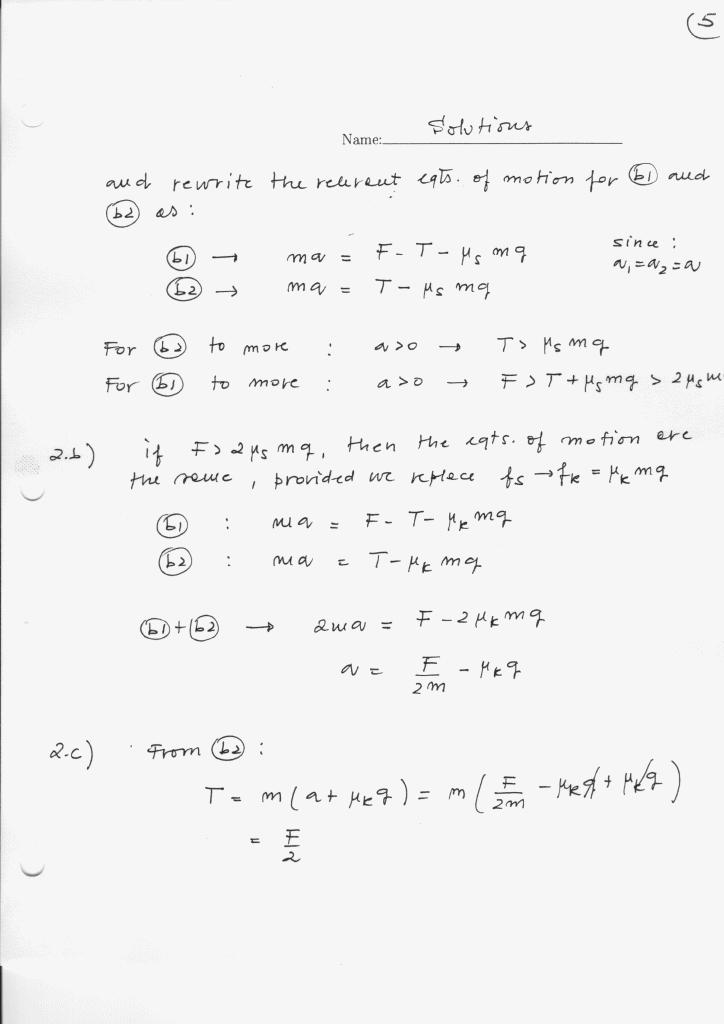 (5
Name: Solutions
and rewrite the relevant eqts. of motion for (b1) and
(b2) as :
(b1) → ma = F - T - μs mg since :
(b2) → ma = T - μs mg a1 = a2 = a
For (b2) to move : a > 0 → T > μs mg
For (b1) to move : a > 0 → F > T + μs mg > 2μs m
2.b) if F > 2μs mg, then the eqts. of motion are
the same, provided we replace fs → fk = μk mg
(b1) : ma = F - T - μk mg
(b2) : ma = T - μk mg
(b1) + (b2) → 2ma = F - 2μk mg
a = F/2m - μk g
2.c) From (b2) :
T = m(a + μk g) = m(F/2m - μk g + μk g)
= F/2